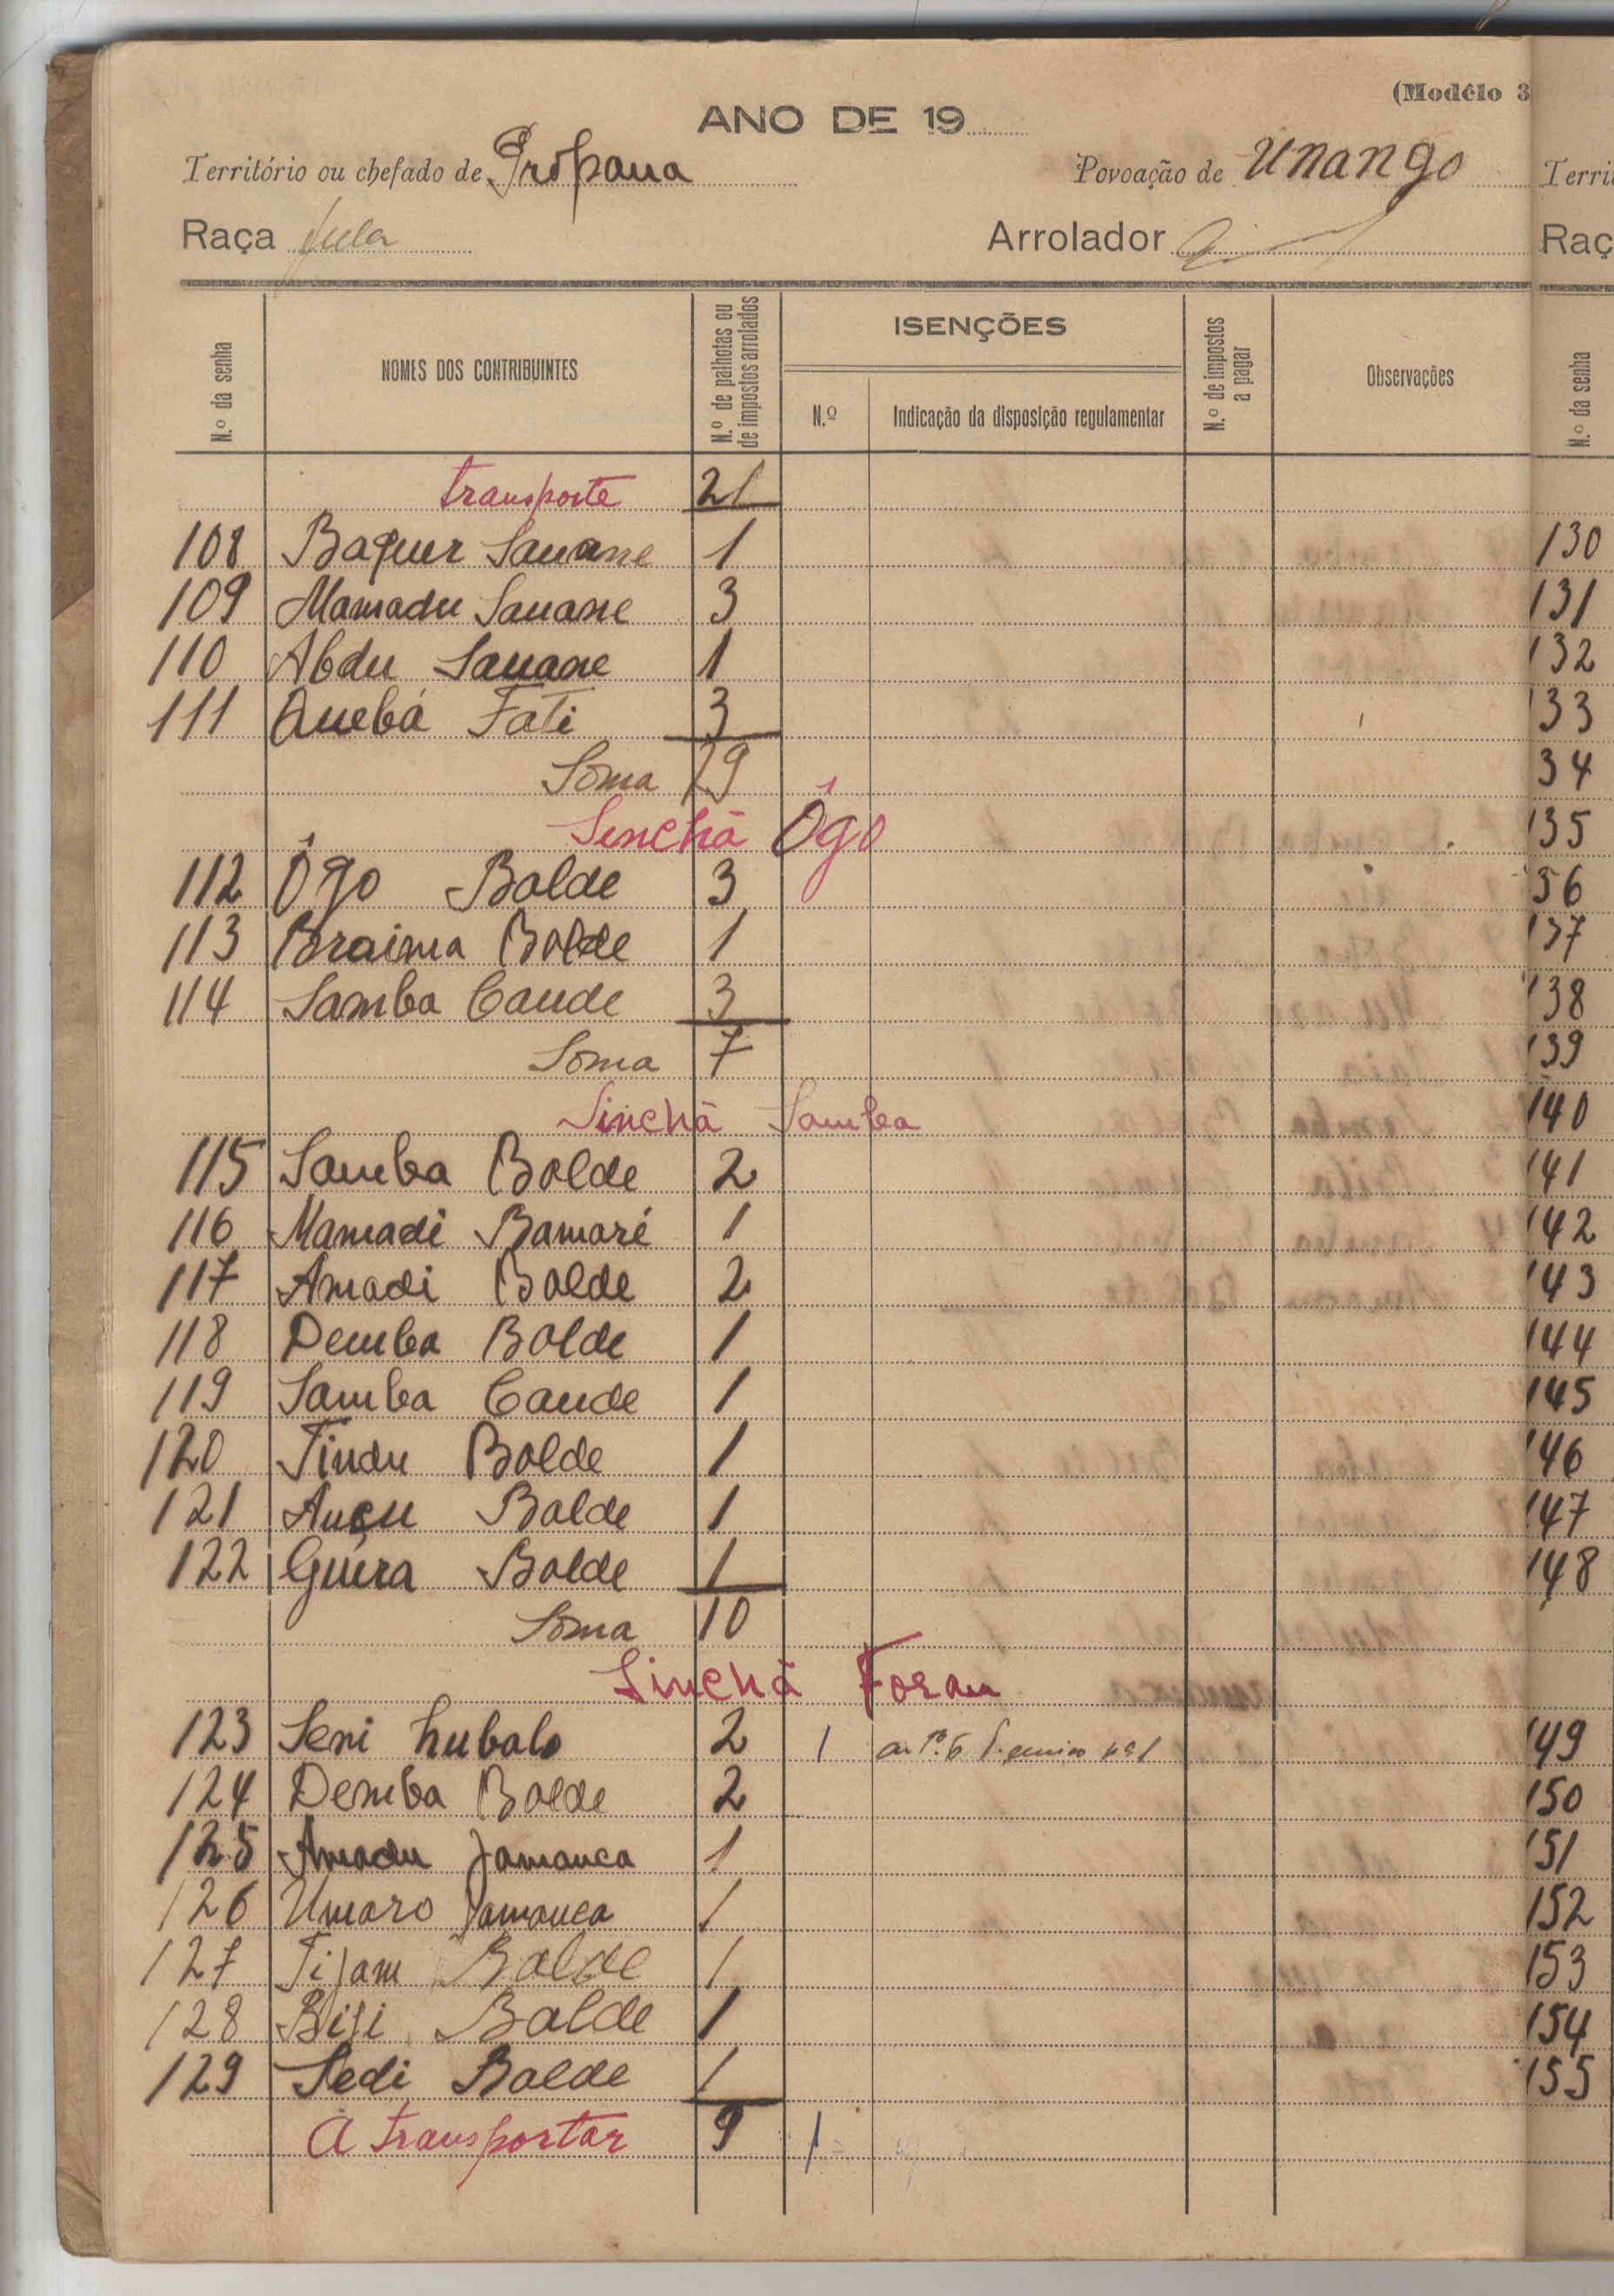 (Modêlo 3
ANO DE 19
Território ou chefado de Propana Povoação de Unango
Raça fula Arrolador
N.º da senha NOMES DOS CONTRIBUINTES N.º de palhotas ou de impostos arrolados ISENÇÕES N.º de impostos a pagar Observações
N.º Indicação da disposição regulamentar
transporte 21
108 Baquer Sauane 1
109 Mamadu Sauane 3
110 Abdu Sauane 1
111 Quebá Fati 3
Sôma 29
Senchã Ôgo
112 Ôgo Balde 3
113 Braima Balde 1
114 Samba Cande 3
Sôma 7
Sinchã Samba
115 Samba Balde 2
116 Mamadi Bamaré 1
117 Amadi Balde 2
118 Demba Balde 1
119 Samba Cande 1
120 Tindu Balde 1
121 Auçu Balde 1
122 Guéra Balde 1
Sôma 10
Sinchã Forau
123 Seni hubalo 2 1
124 Demba Balde 2
125 Amadu Jamanca 1
126 Umaro Jamanca 1
127 Tijam Balde 1
128 Biji Balde 1
129 Sedi Balde 1
A transportar 9 1
Terri
Raç
N.º da senha
130
131
132
133
34
135
36
137
138
139
140
141
142
143
144
145
146
147
148
149
150
151
152
153
154
155